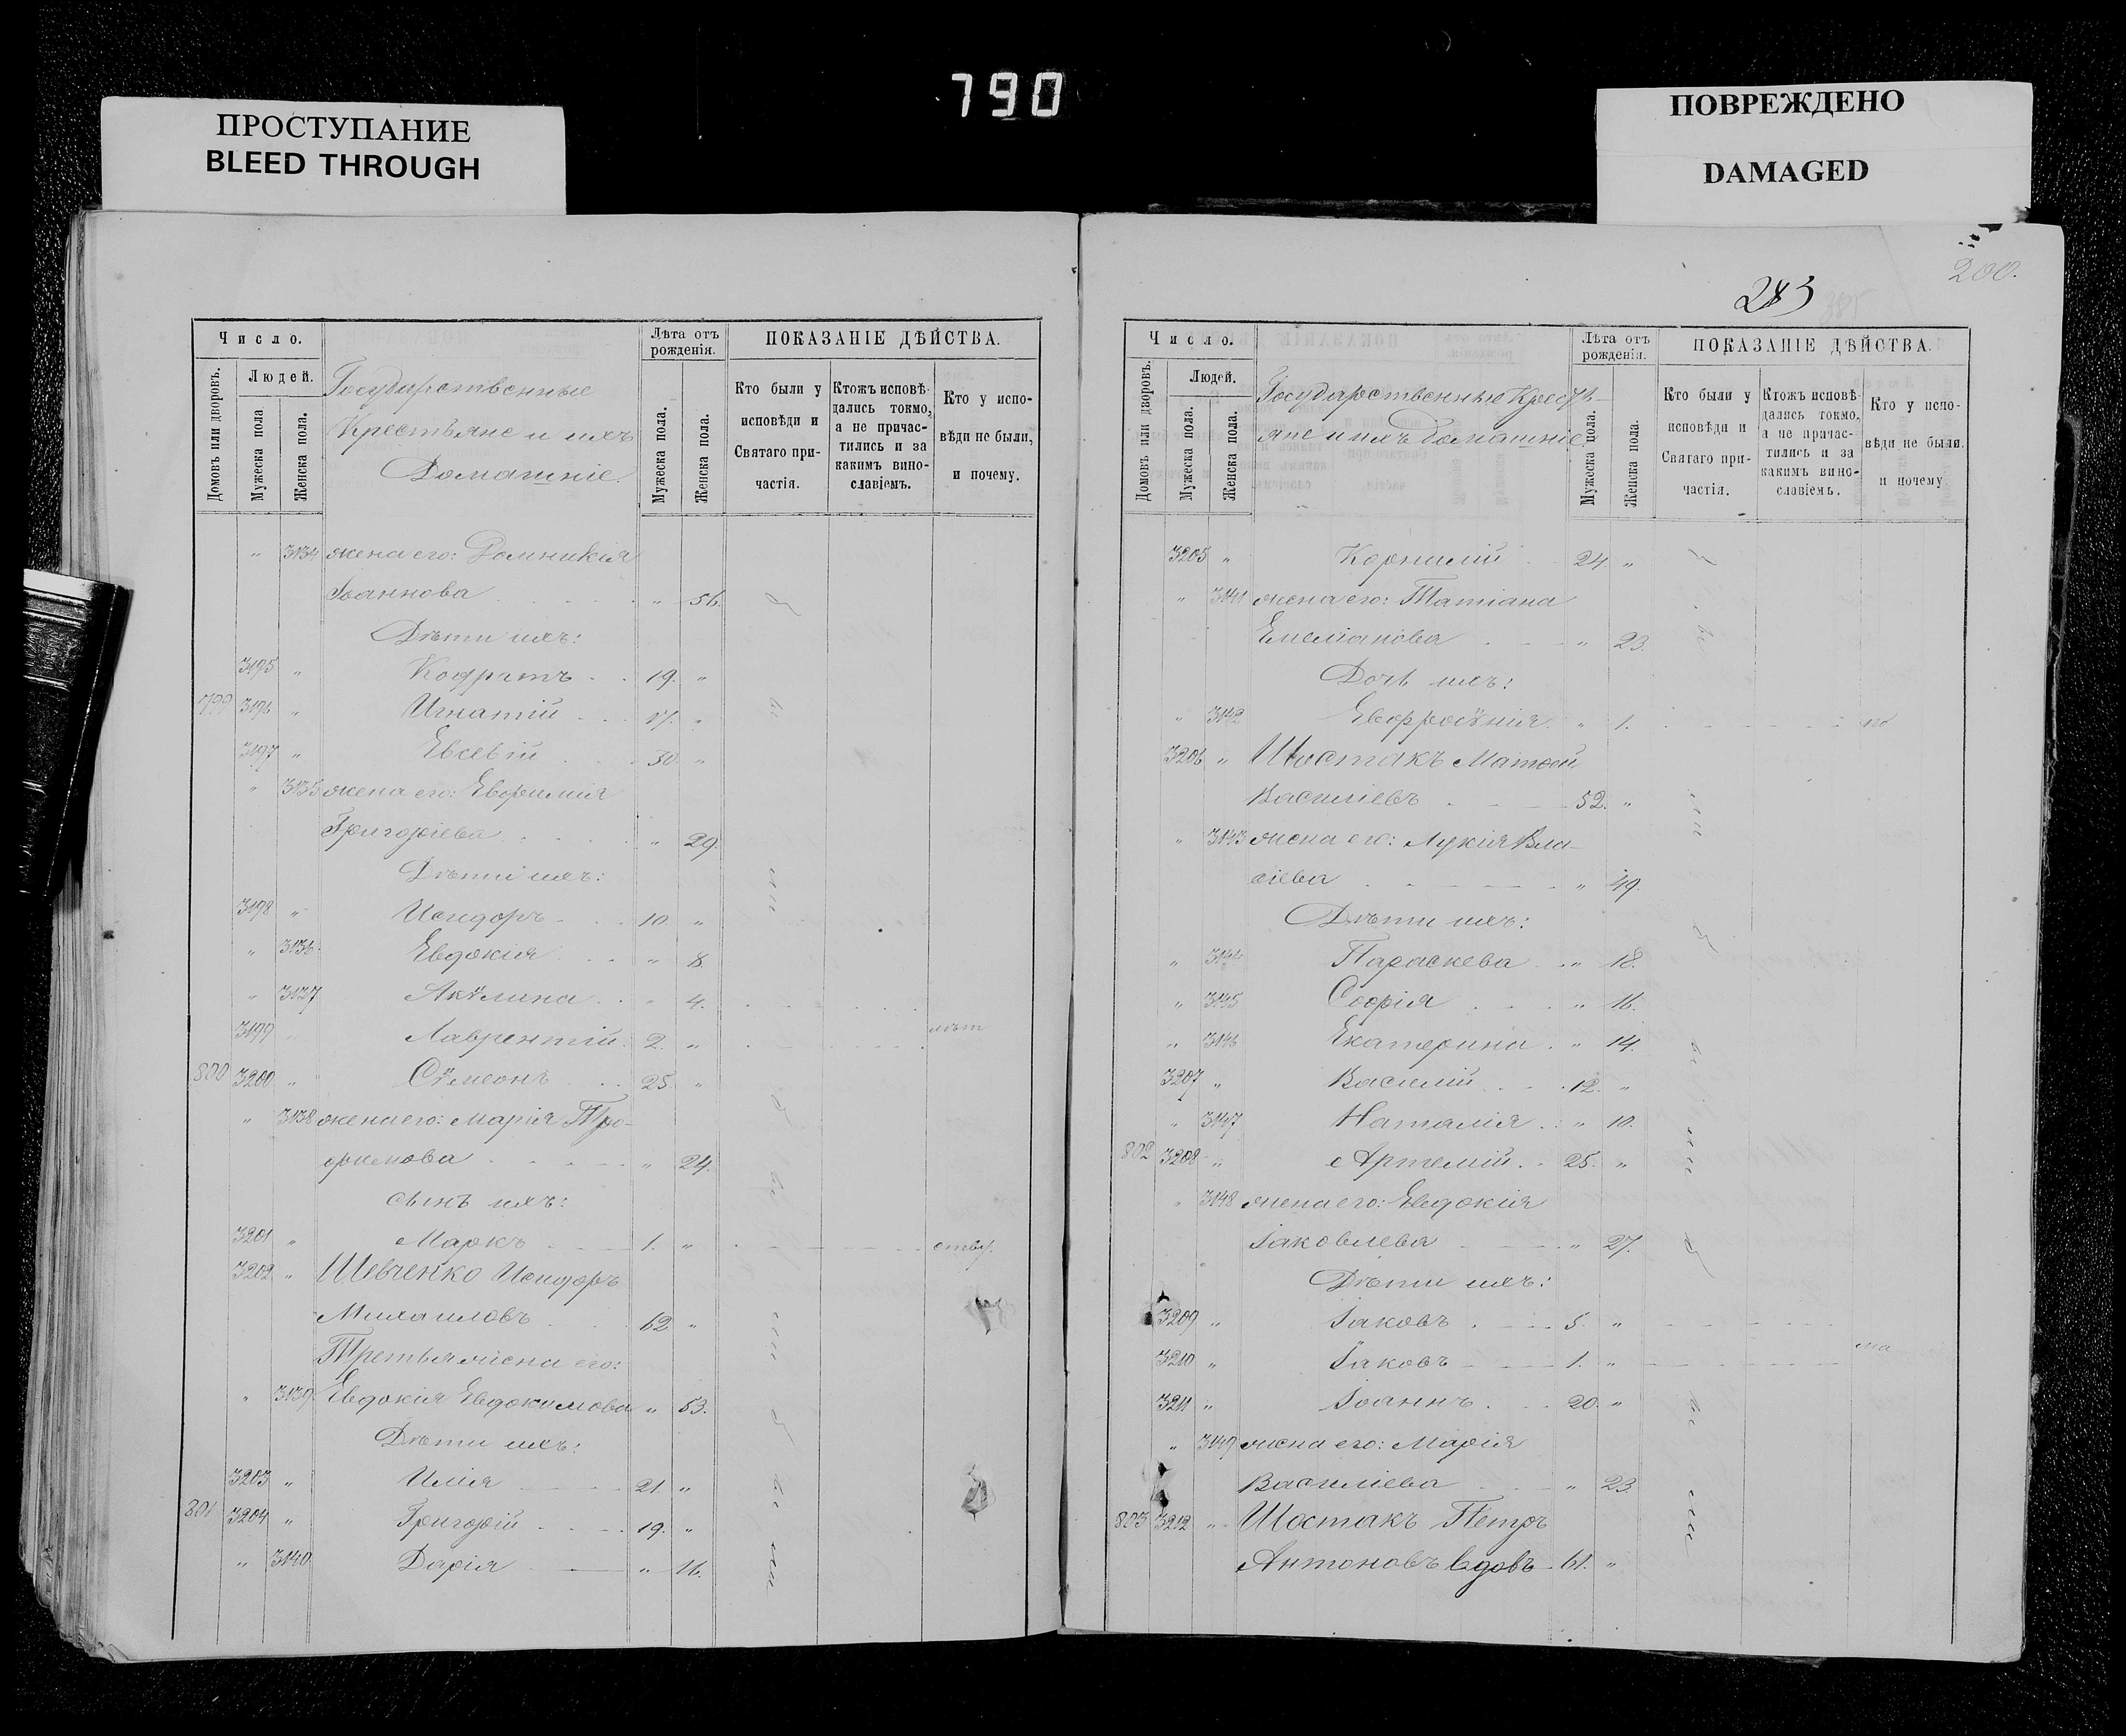 790
ПРОСТУПАНИЕ
BLEED THROUGH
ПОВРЕЖДЕНО
DAMAGED
Число.
Людей.
Домовъ или дворовъ.
Мужеска пола
Женска пола.
Государственные
Крестьяне и ихъ
Домашніе.
Лѣта отъ рожденія.
Мужеска пола.
Женска пола.
ПОКАЗАНІЕ ДѢЙСТВА.
Кто были у исповѣди и Святаго причастія.
Ктожъ исповѣдались токмо, а не причастились и за какимъ винословіемъ.
Кто у исповѣди не были, и почему.
" 3134 жена его: Домникія
Іоаннова " 56.
Дѣти ихъ:
3195 " Кодратъ 19. "
799 3196 " Игнатій 17. "
3197 " Евсевій 30. "
" 3135 жена его: Евфимія
Григоріева " 29.
Дѣти ихъ:
3198 " Исидоръ 10. "
" 3136 Евдокія " 8.
" 3137 Акѵлина " 4.
3199 " Лаврентій 2. "
800 3200 " Сѵмеонъ 25. "
" 3138 жена его: Марія Тро-
фимова " 24.
сынъ ихъ:
3201 " Маркъ 1. "
3202 " Шевченко Исидоръ
Михаиловъ 62 "
Третья жена его:
" 3139. Евдокія Евдокимова " 53.
Дѣти ихъ:
3203 " Илія 21. "
801 3204 " Григорій 19. "
" 3140 Дарія " 16.
200.
283
Число.
Людей.
Домовъ или дворовъ.
Мужеска пола.
Женска пола.
Государственные Кресть-
яне и ихъ домашніе.
Лѣта отъ рожденія.
Мужеска пола.
Женска пола.
ПОКАЗАНІЕ ДѢЙСТВА.
Кто были у исповѣди и Святаго причастія.
Ктожъ исповѣдались токмо, а не причастились и за какимъ винословіемъ.
Кто у исповѣди не были и почему
3205 " Корнилій 24. "
" 3141 жена его: Татіана
Емеліанова " 23.
Дочь ихъ:
" 3142 Евфросѵнія " 1.
3206 " Шостакъ Матѳей
Василіевъ 52. "
" 3143 жена его: Лукія Вла-
сіева " 49.
Дѣти ихъ:
" 3144 Параскева " 18.
" 3145 Софія " 16.
" 3146 Екатерина " 14.
3207 " Василій 12. "
" 3147 Наталія " 10.
802 3208 " Артемій 25. "
" 3148 жена его: Евдокія
Іаковлева " 27.
Дѣти ихъ:
3209 " Іаковъ 5. "
3210 " Іаковъ 1. "
3211 " Іоаннъ 20. "
" 3149 жена его: Марія
Василіева " 23.
803 3212 " Шостакъ Петръ
Антоновъ вдовъ 61. "